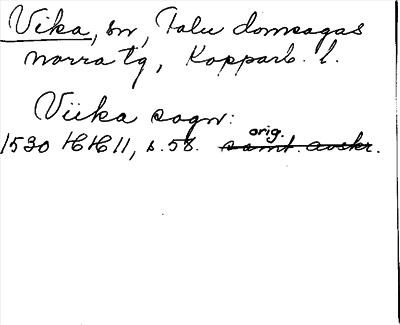 Vika, sn, Falu domsagas
norra tg, Kopparb. l.
Viika sogn:
orig.
1530 HH 11, s. 58. samt. avskr.